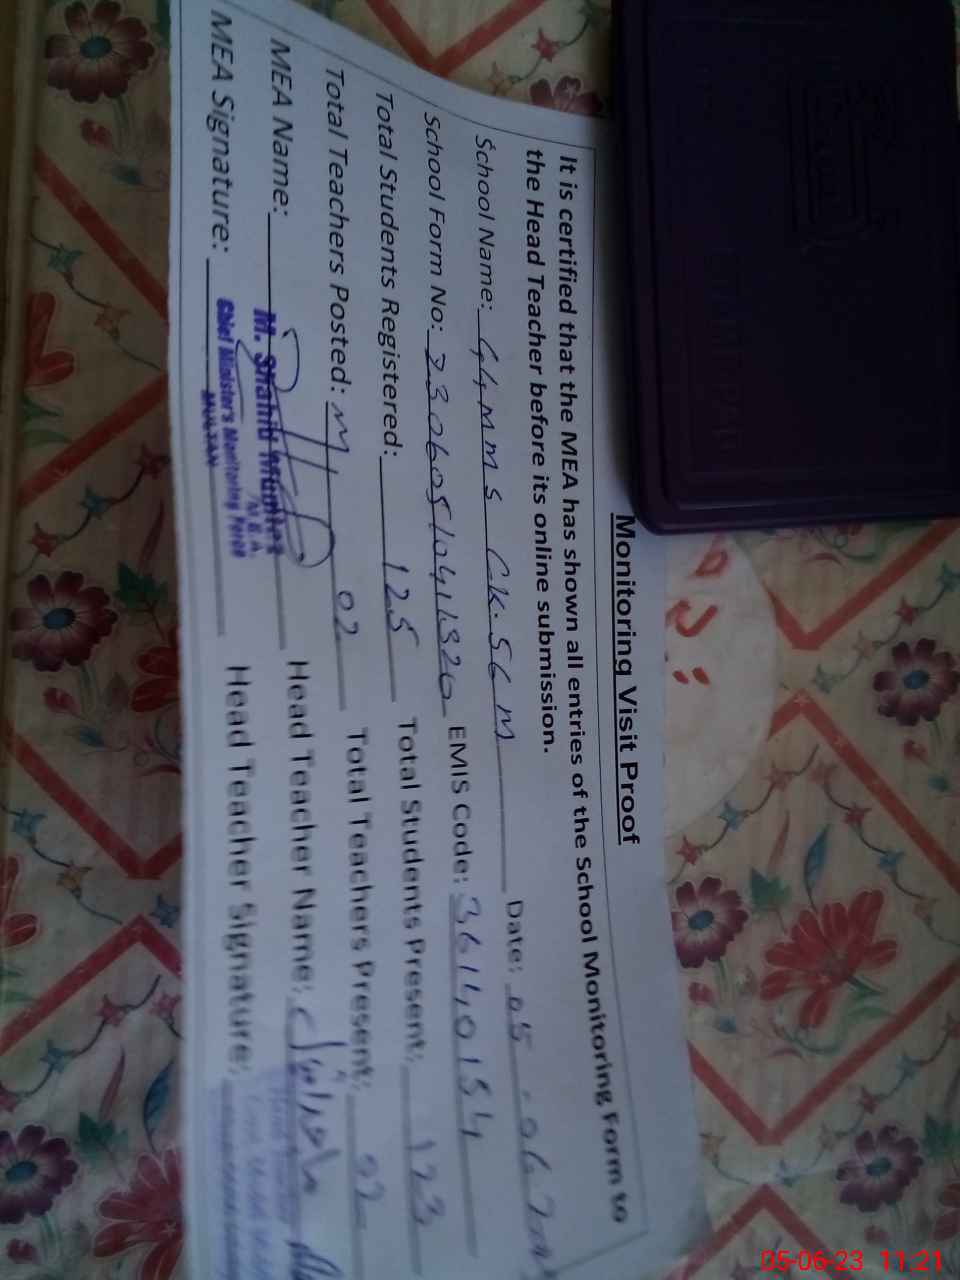 STAMP PAD
Monitoring Visit Proof
It is certified that the MEA has shown all entries of the School Monitoring Form to
the Head Teacher before its online submission.
School Name: G4MMS CK.56M Date: 05-06-20
School Form No: 2306051041320 EMIS Code: 36140154
Total Students Registered: 125 Total Students Present: 123
Total Teachers Posted: 02 Total Teachers Present: 02
MEA Name: M. Shahid Head Teacher Name:
MEA Signature: Chief Minister's Monitoring Force Head Teacher Signature:
M.E.A
MULTAN
05-06-23 11:21